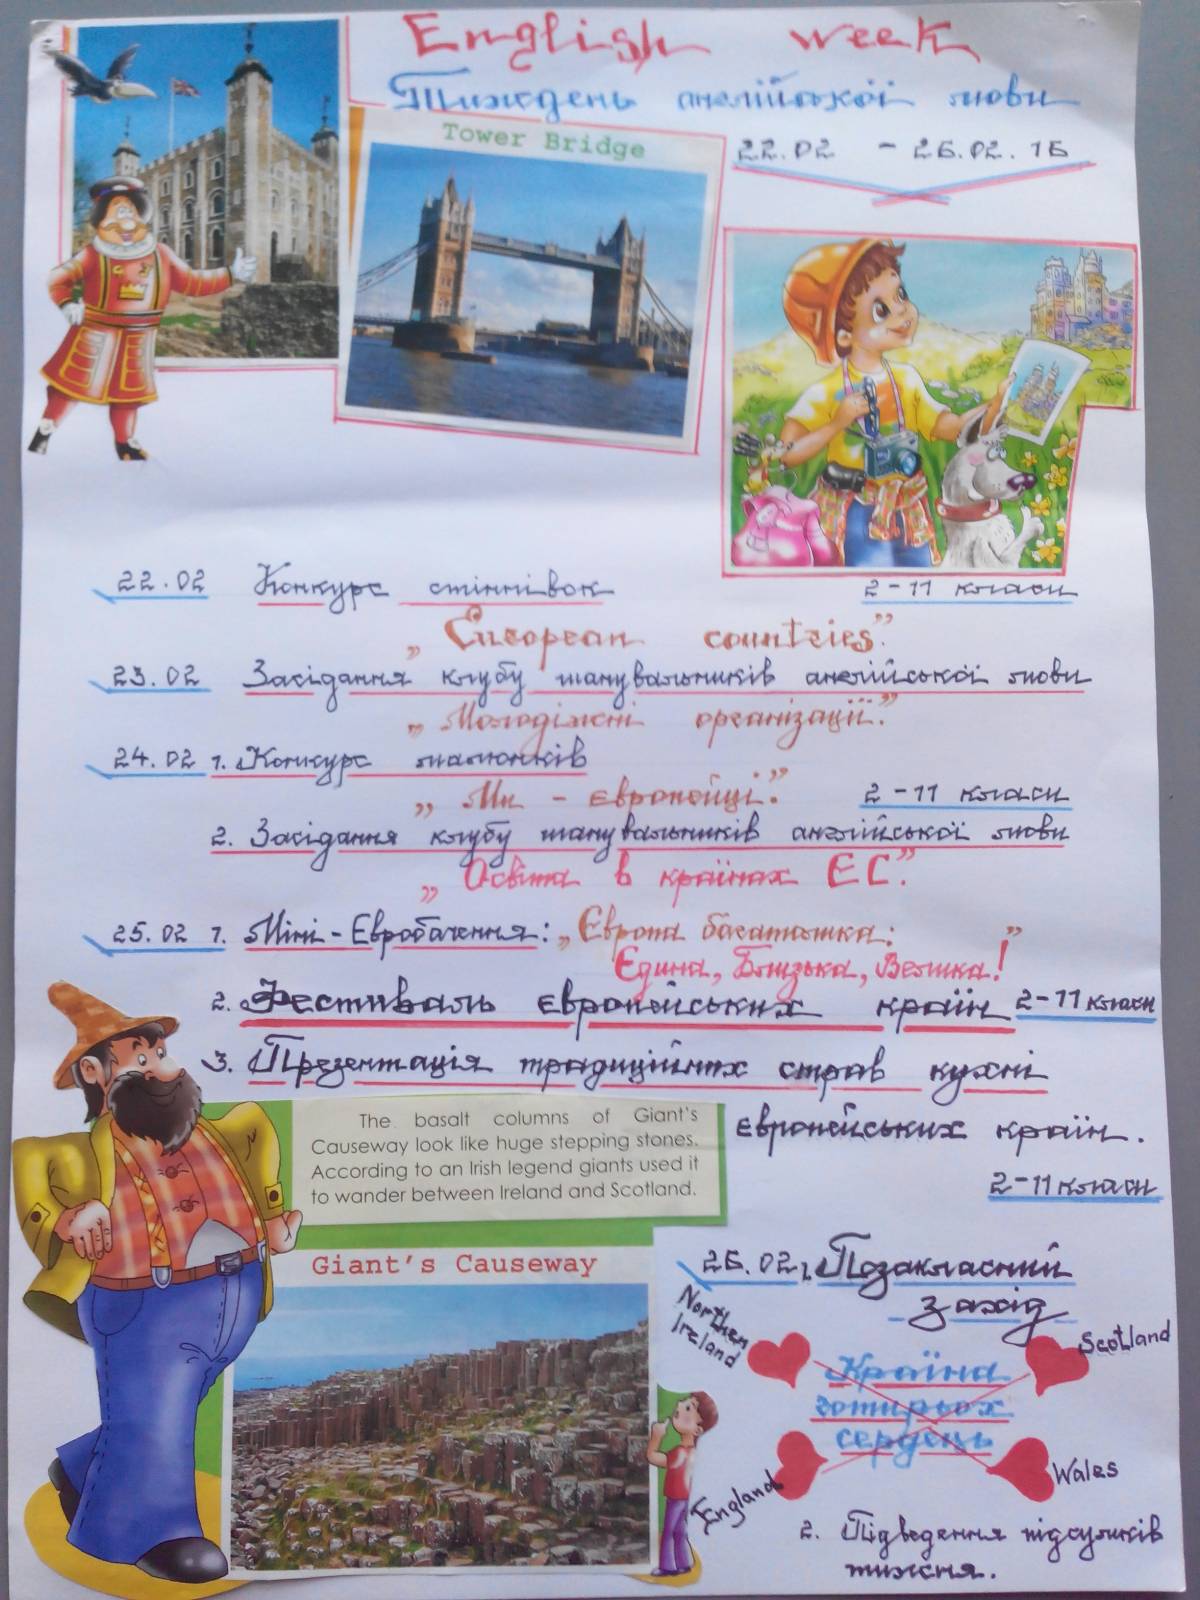 English week
Тиждень англійської мови
22.02 - 26.02.16
Tower Bridge
22.02 Конкурс стіннівок 2-11 класи
„European countries".
23.02 Засідання клубу шанувальників англійської мови
„Молодіжні організації."
24.02 1. Конкурс малюнків
„Ми - європейці." 2-11 класи
2. Засідання клубу шанувальників англійської мови
„Освіта в країнах ЄС".
25.02 1. Міні-Євробачення: „Європа багатолика:
Єдина, Близька, Велика!"
2. Фестиваль європейських країн 2-11 класи
3. Презентація традиційних страв кухні
європейських країн.
2-11 класи
The basalt columns of Giant's
Causeway look like huge stepping stones.
According to an Irish legend giants used it
to wander between Ireland and Scotland.
Giant's Causeway
26.02 1. Позакласний
захід
Northen
Ireland
Scotland
Країна
чотирьох
сердець
England
Wales
2. Підведення підсумків
тижня.